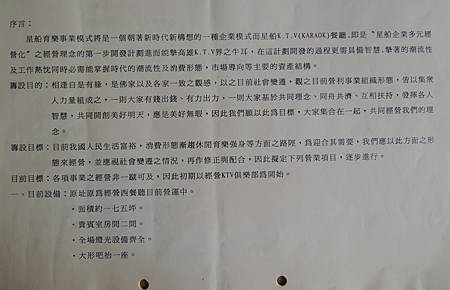 序言：
星船育樂事業模式將是一個朝著新時代新構想的一種企業模式而星船K.T.V(KARAOK)餐廳,即是〝星船企業多元經
營化〞之經營理念的第一步開發計劃進而能摯高雄K.T.V界之牛耳，在這計劃開發的過程更需具備智慧.摯著的潮流性
及工作熱忱同時必需能掌握時代的潮流性及消費形態，市場導向等主要的資產結構。
籌設目的：相逢自是有緣，是佛家以及各家一致之觀感，以之目前社會變遷，觀之目前營利事業組織形態，皆以集衆
人力量組成之，一則大家有錢出錢、有力出力，一則大家基於共同理念、同舟共濟、互相扶持，發揮各人
智慧，共同開創美好明天，應是美好無瑕，因此我們願以此爲目標，大家集合在一起，共同經營我們的理
念。
籌設目標：目前我國人民生活富裕，消費形態漸趨休閒育樂强身等方面之路陞，爲迎合其需要，我們應以此方面之形
態來經營，並應視社會變遷之情況，再作修正與配合，因此擬定下列營業項目，逐步進行。
目前目標：各項事業之經營非一蹴可及，因此初期以經營KTV俱樂部爲開始。
一、目前設備：原址原爲經營西餐廳目前營運中。
・面積約一七五坪。
・貴賓室房間二間。
・全場燈光設備齊全。
・大形吧抬一座。